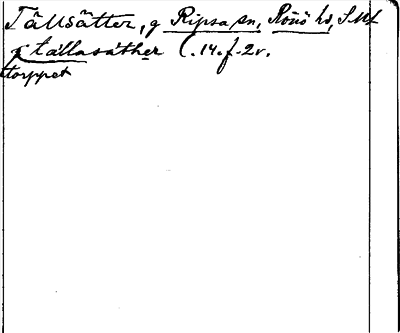 Tällsätter, g Ripsa sn, Rönö hd, Sml
j tällasäther C. 14. f. 2v.
torppet